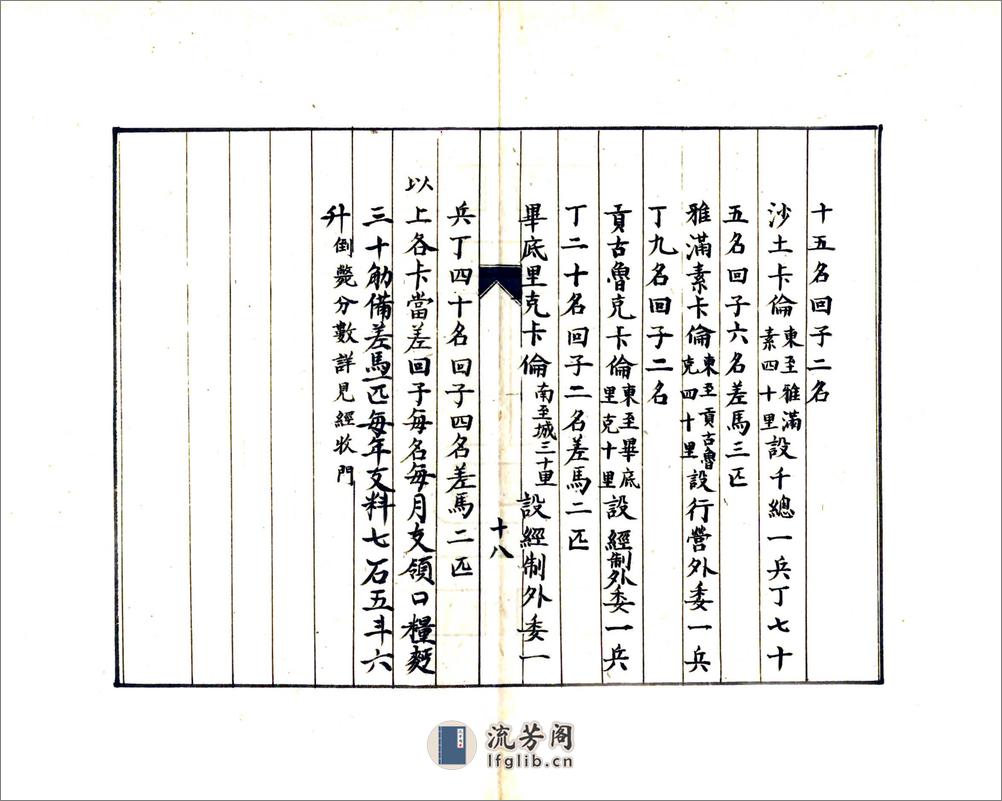 十五名回子二名
沙土卡倫東至雅滿素四十里設千總一兵丁七十
五名回子六名差馬三匹
雅滿素卡倫東至貢古魯克四十里設行營外委一兵
丁九名回子二名
貢古魯克卡倫東至畢底里克十里設經制外委一兵
丁二十名回子二名差馬二匹
畢底里克卡倫南至城三十里設經制外委一
十八
兵丁四十名回子四名差馬二匹
以上各卡當差回子每名每月支領口糧麪
三十觔備差馬一匹每年支料七石五斗六
升倒斃分數詳見經牧門
流芳阁
lfglib.cn